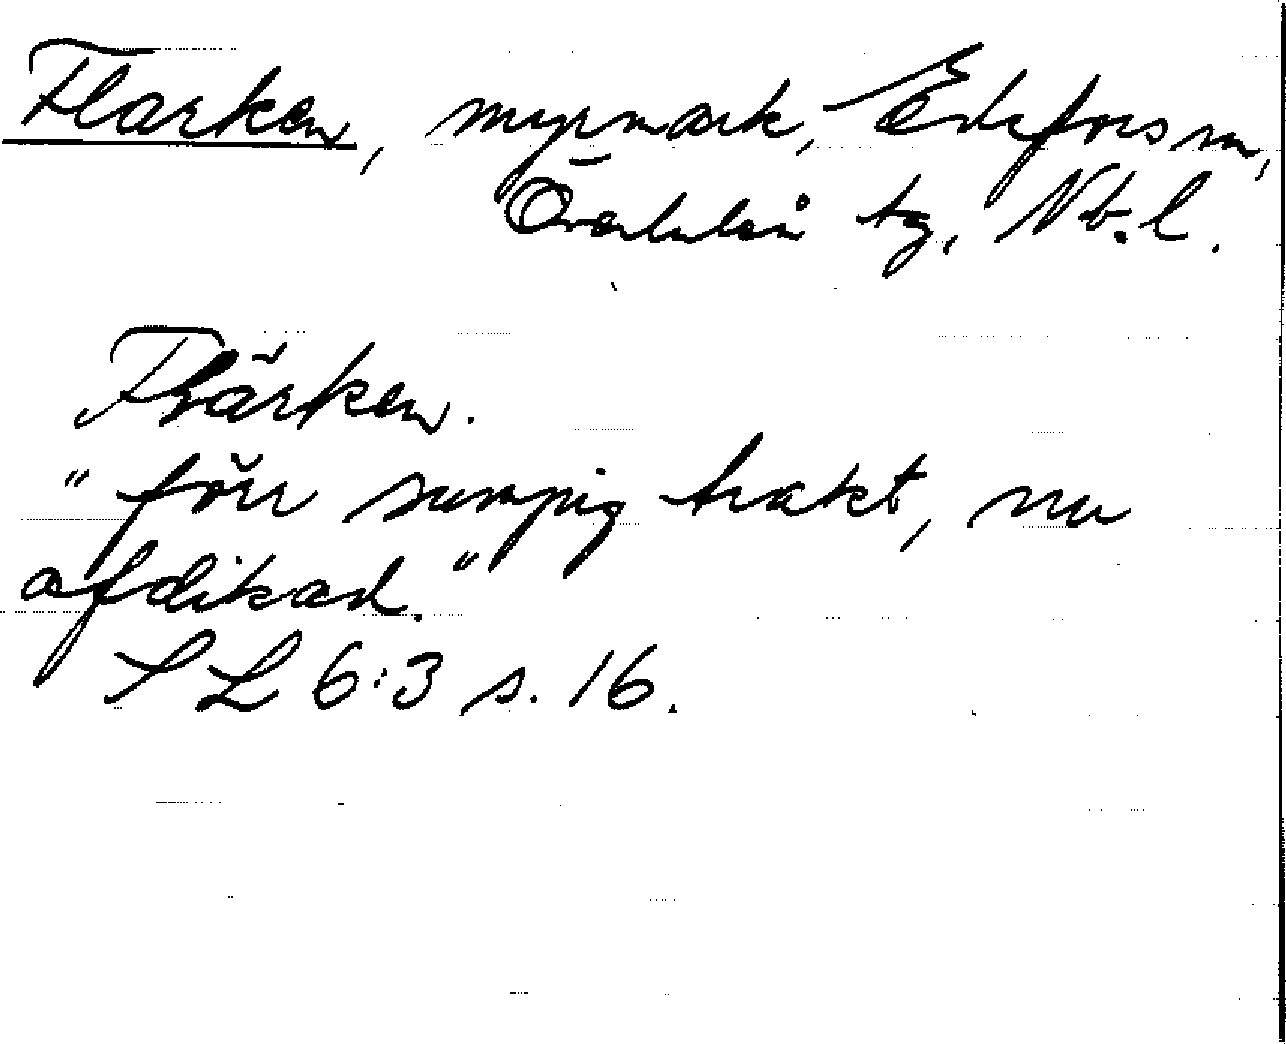 Flarken, myrmark, Edefors sn,
Överluleå tg, Nb.l.
Flärken.
"förr sumpig trakt, nu
afdikad."
SL 6:3 s. 16.